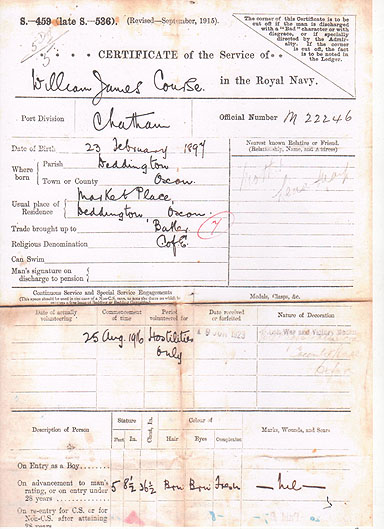 S.—459 (late S.—536). (Revised—September, 1915).
The corner of this Certificate is to be
cut off if the man is discharged
with a "Bad" character or with
disgrace, or if specially
directed by the Admiralty.
If the corner
is cut off, the fact
is to be noted in
the Ledger.
CERTIFICATE of the Service of
William James Course.
in the Royal Navy.
Port Division
Chatham
Official Number M 22246
Date of Birth 23 February 1897
Nearest known Relative or Friend.
(Relationship, Name, and Address)
Where born
Parish Deddington
Town or County Oxon.
Usual place of Residence
Market Place,
Deddington, Oxon.
Trade brought up to Baker
Religious Denomination C of E.
Can Swim
Man's signature on
discharge to pension
Continuous Service and Special Service Engagements
Medals, Clasps, &c.
Date of actually
volunteering
Commencement
of time
Period
volunteered for
Date received
or forfeited
Nature of Decoration
25 Aug. 1916 Hostilities
only
War and Victory
Description of Person
Stature
Feet In.
Chest, In.
Colour of
Hair Eyes Complexion
Marks, Wounds, and Scars
On Entry as a Boy
On advancement to man's
rating, or on entry under
28 years
5 8½ 36½ Brn Brn Fresh — Nil —
On re-entry for C.S. or for
Non-C.S. after attaining
28 years